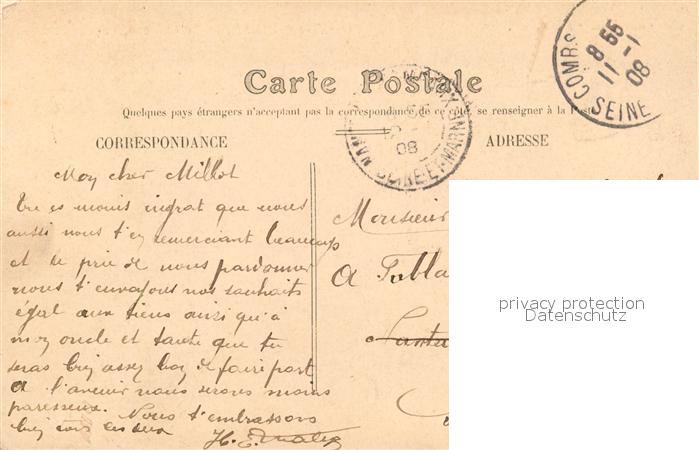 Carte Postale
Quelques pays étrangers n'acceptant pas la correspondance de ce côté, se renseigner à la Poste
CORRESPONDANCE
ADRESSE
COMBS
8 55
11 - 1
08
SEINE
08
SEINE-ET-MARNE
Mon cher Millot
Tu es moins ingrat que nous
aussi nous t'en remerciant beaucoup
et te prie de nous pardonner
nous t'envoyons nos souhaits
égal aux tiens ainsi qu'à
mon oncle et tante que tu
seras bien assez bon de faire part
a l'avenir nous serons moins
paresseux. Nous t'embrassons
bien tous les deux
H. E.
Monsieur
A
privacy protection
Datenschutz